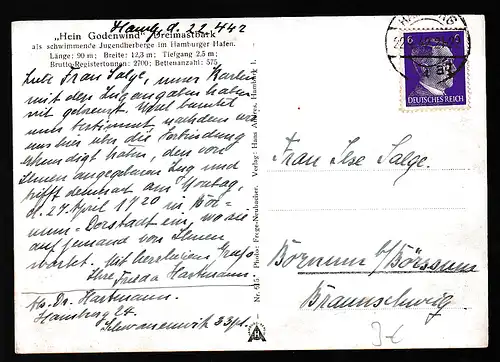 Hamb. d. 22.4.42
„Hein Godenwind“ Dreimastbark
als schwimmende Jugendherberge im Hamburger Hafen.
Länge: 90 m; Breite: 12,3 m; Tiefgang 2,5 m;
Brutto-Registertonnen: 2700; Bettenanzahl: 575
Liebe Frau Salge, unsere Karten
mit den Zugangaben haben
sich gekreuzt. Ursel benutzt
nun bestimmt, nachdem wir
uns hier über die Verbindung
erkundigt haben, den von
Ihnen angegebenen Zug und
trifft demnach am Montag,
d. 27. April 1720 in Bör-
num-Dorstadt ein, wo sie
auf jemand von Ihnen
wartet. Mit herzlichem Gruß
Ihre Frieda Hartmann.
Abs. Dr. Hartmann.
Hamburg 24.
Schwanenwik 33 pt.
Nr. 415 Photo: Frege-Neubacher. Verlag: Hans Andres, Hamburg 1.
HAMBURG
6 6
DEUTSCHES REICH
Frau Ilse Salge.
Börnum b/Börssum
Braunschweig.
3€